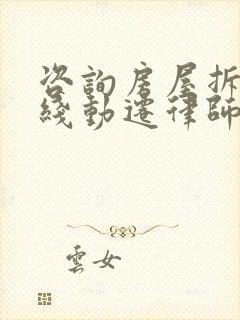 咨詢房屋拆
綫動遷律師
雲女